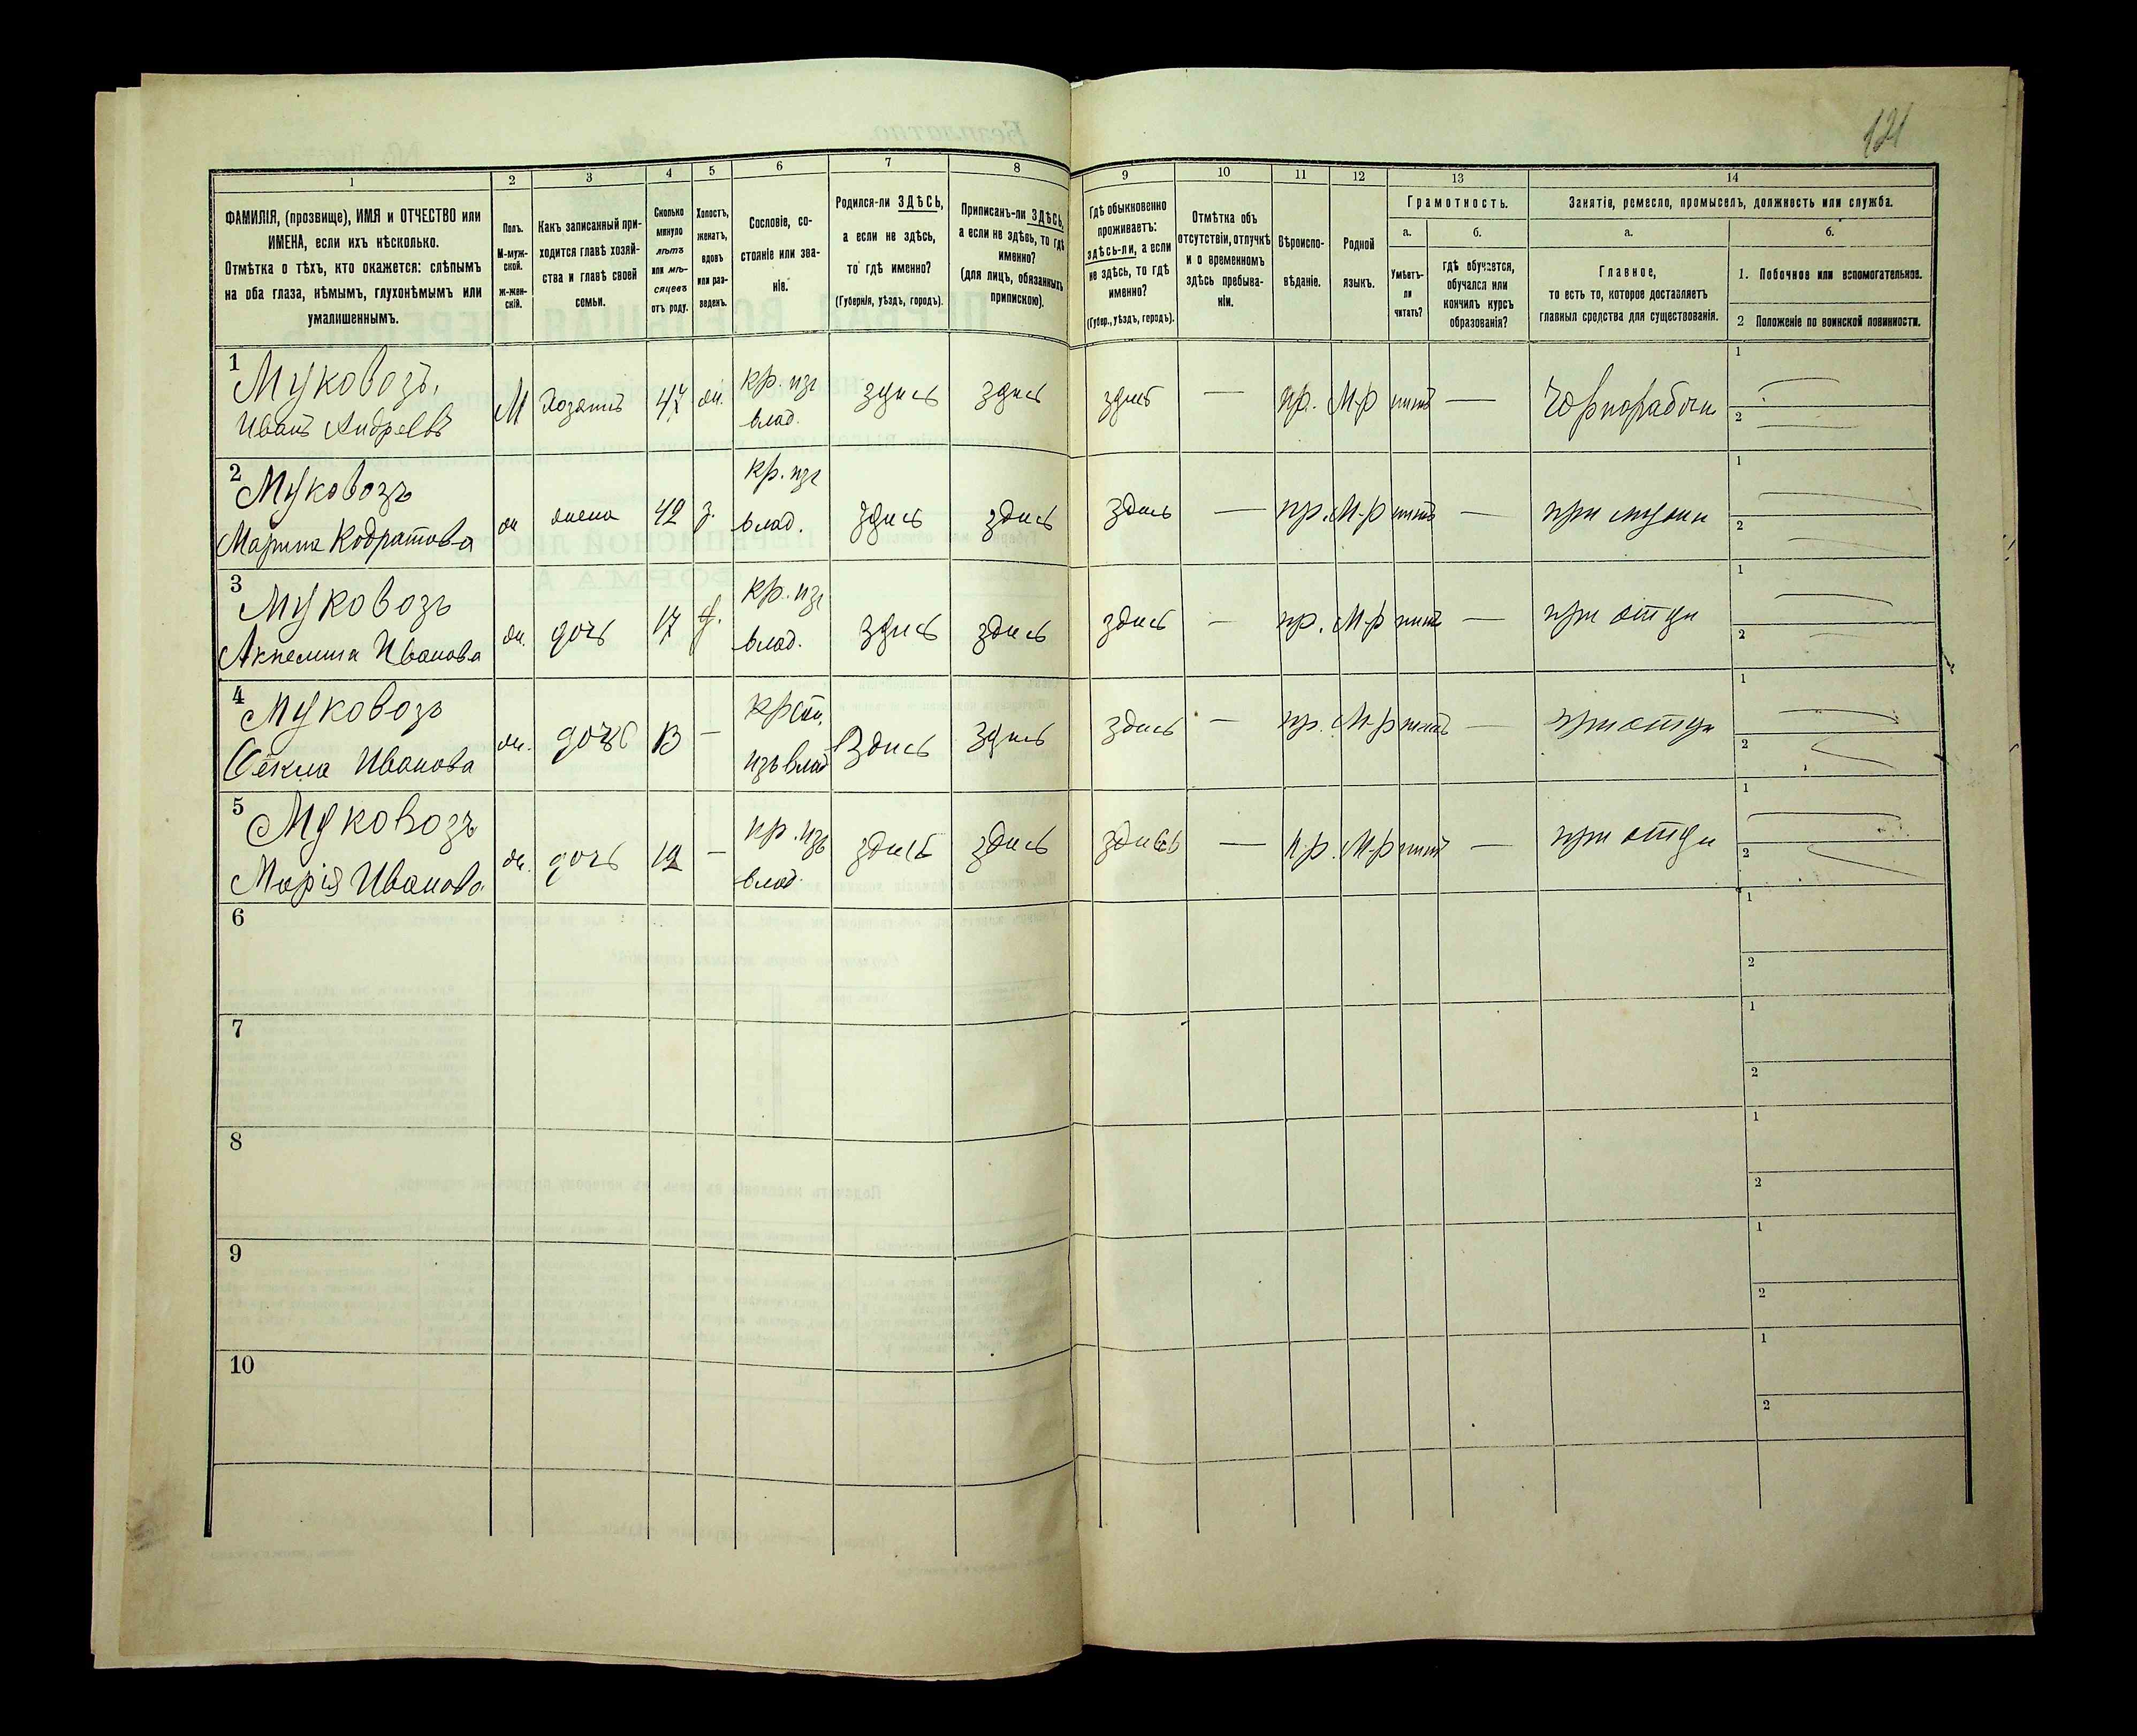 121
1 2 3 4 5 6 7 8 9 10 11 12 13 14
ФАМИЛІЯ, (прозвище), ИМЯ и ОТЧЕСТВО или
ИМЕНА, если ихъ нѣсколько.
Отмѣтка о тѣхъ, кто окажется: слѣпымъ
на оба глаза, нѣмымъ, глухонѣмымъ или
умалишеннымъ.
Полъ.
М-муж-
ской.
ж-жен-
скій.
Какъ записанный при-
ходится главѣ хозяй-
ства и главѣ своей
семьи.
Сколько
минуло
лѣтъ
или мѣ-
сяцевъ
отъ роду.
Холостъ,
женатъ,
вдовъ
или раз-
веденъ.
Сословіе, со-
стояніе или зва-
ніе.
Родился-ли ЗДѢСЬ,
а если не здѣсь,
то гдѣ именно?
(Губернія, уѣздъ, городъ).
Приписанъ-ли ЗДѢСЬ,
а если не здѣсь, то гдѣ
именно?
(для лицъ, обязанныхъ
припискою).
Гдѣ обыкновенно
проживаетъ:
здѣсь-ли, а если
не здѣсь, то гдѣ
именно?
(Губер., уѣздъ, городъ).
Отмѣтка объ
отсутствіи, отлучкѣ
и о временномъ
здѣсь пребыва-
ніи.
Вѣроиспо-
вѣданіе.
Родной
языкъ.
Грамотность.
а.
Умѣетъ-
ли
читать?
б.
гдѣ обучается,
обучался или
кончилъ курсъ
образованія?
Занятіе, ремесло, промыселъ, должность или служба.
а.
Главное,
то есть то, которое доставляетъ
главныя средства для существованія.
б.
1. Побочное или вспомогательное.
2 Положеніе по воинской повинности.
1 Муковозъ, кр. изъ 1
Иванъ Андреевъ М хозяинъ 47 жн. влад. здись здись здись — пр. М-р нитъ — Чорнорабочи 2
2 Муковозъ кр. изъ 1
Марина Кодратова ж жена 42 з. влад. здись здись здись — пр. М-р нитъ — при мужи 2
3 Муковозъ кр. изъ 1
Иванова ж. дочь 17 влад. здись здись здись — пр. М-р нитъ — при отци 2
4 Муковозъ крст. 1
Ѳёкла Иванова ж. дочь 13 — изъ влад здись здись здись — пр. М-р нитъ — при отци 2
5 Муковозъ кр. изъ 1
Марія Иванова ж. дочь 12 — влад. здись здись здись — пр. М-р нитъ — при отци 2
6 1
2
7 1
2
8 1
2
9 1
2
10 1
2